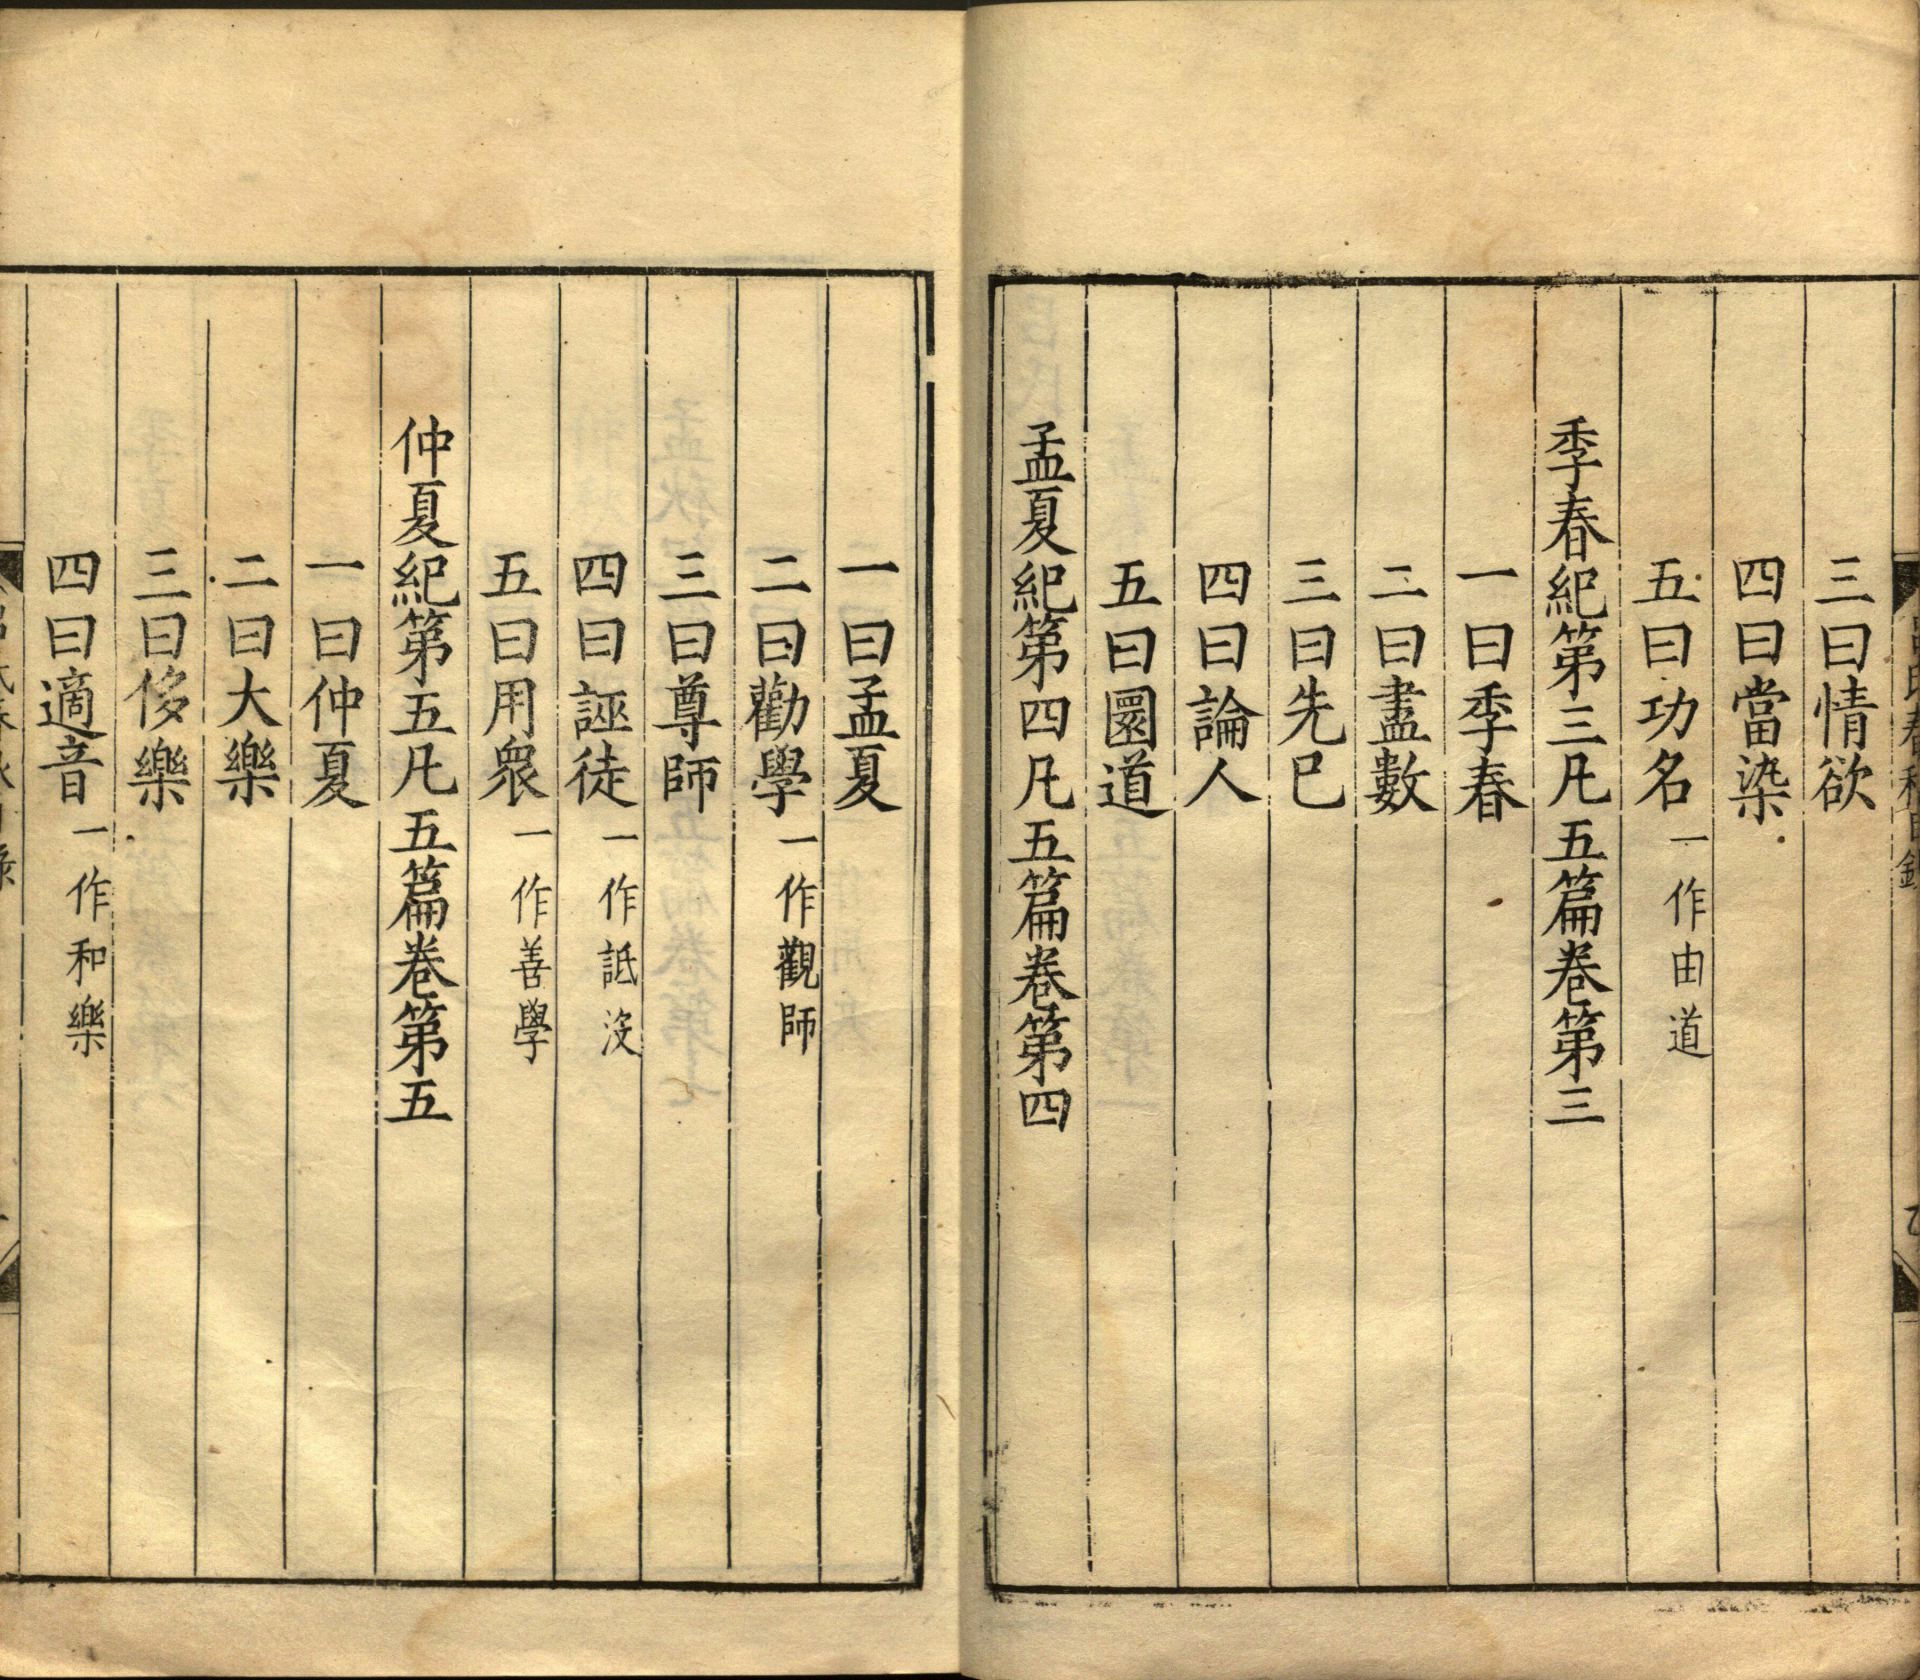 三曰情欲
四曰當染
五曰功名一作由道
季春紀第三凡五篇卷第三
一曰季春
二曰盡數
三曰先巳
四曰論人
五曰圜道
孟夏紀第四凡五篇卷第四
一曰孟夏
二曰勸學一作觀師
三曰尊師
四曰誣徒一作詆没
五曰用衆一作善學
仲夏紀第五凡五篇卷第五
一曰仲夏
二曰大樂
三曰侈樂
四曰適音一作和樂